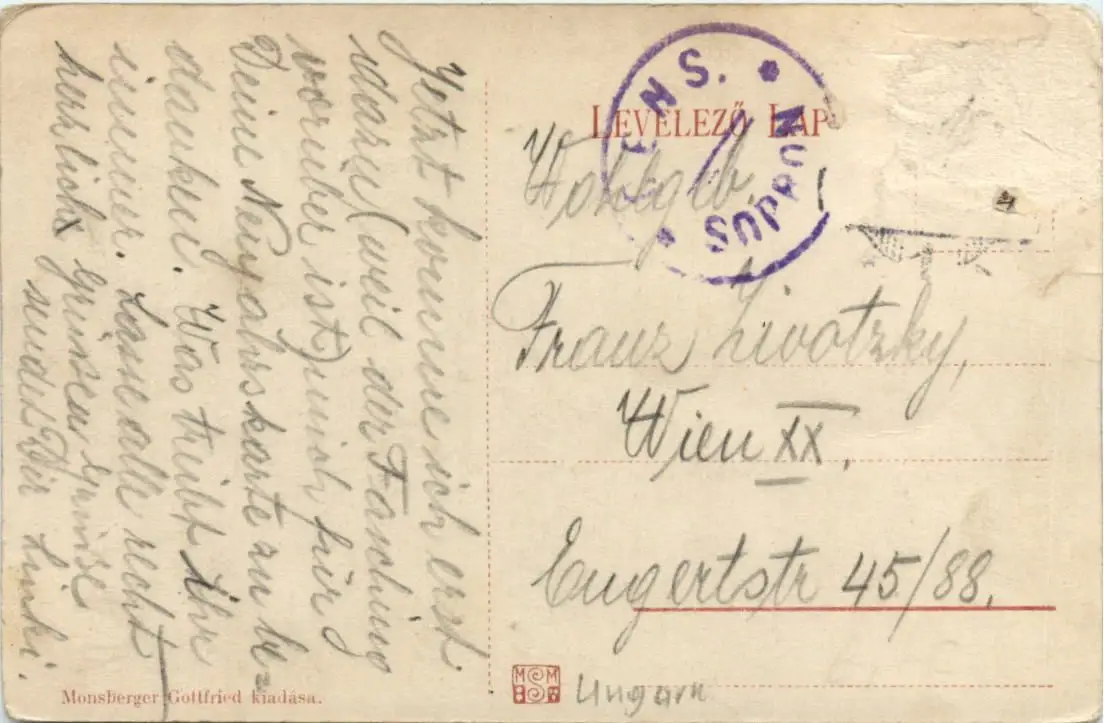 LEVELEZŐ LAP
ENS. * SOPRON *
Wohlgeb.
Franz Livotzky,
Wien XX.
Engertstr 45/88.
Ungarn
Jetzt komme ich erst
dazu (weil der Fasching
vorüber ist) mich für
Deine Neujahrskarte zu be=
danken. Was treibt ihr
immer. Lasse alle recht
herrlich grüssen Grüsse
sendet Dir
Monsberger Gottfried kiadása.
MSM